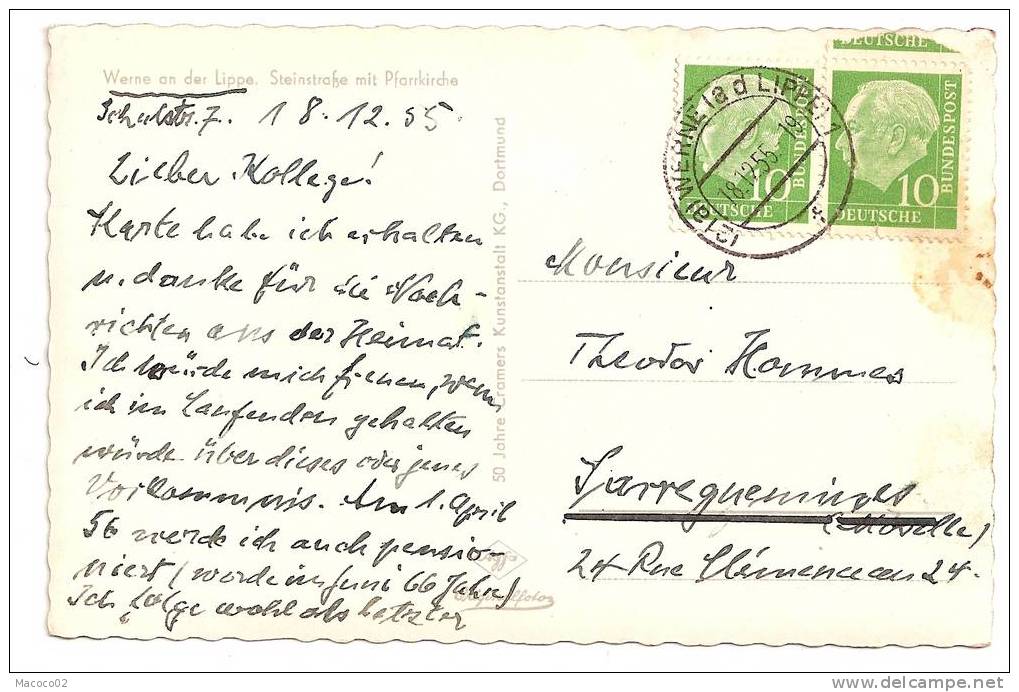 Werne an der Lippe. Steinstraße mit Pfarrkirche
Schulstr. 7. 18.12.55
Lieber Kollege!
Karte habe ich erhalten
u. danke für die Nach-
richten aus der Heimat.
Ich würde mich freuen, wenn
ich im Laufenden gehalten
würde über dieses oder jenes
Vorkommnis. Am 1. April
56 werde ich auch pensio-
niert (werde im Juni 66 Jahre)
Ich folge wohl als letzter
50 Jahre Cramers Kunstanstalt KG., Dortmund
DEUTSCHE
(21a) WERNE (a d LIPPE) 1
18.12.55 - 19
10
BUNDESPOST
DEUTSCHE
10
BUNDESPOST
DEUTSCHE
Monsieur
Theodor Hommes
Sarreguemines
(Moselle)
24 Rue Clémenceau 24.
Macoco02
www.delcampe.net